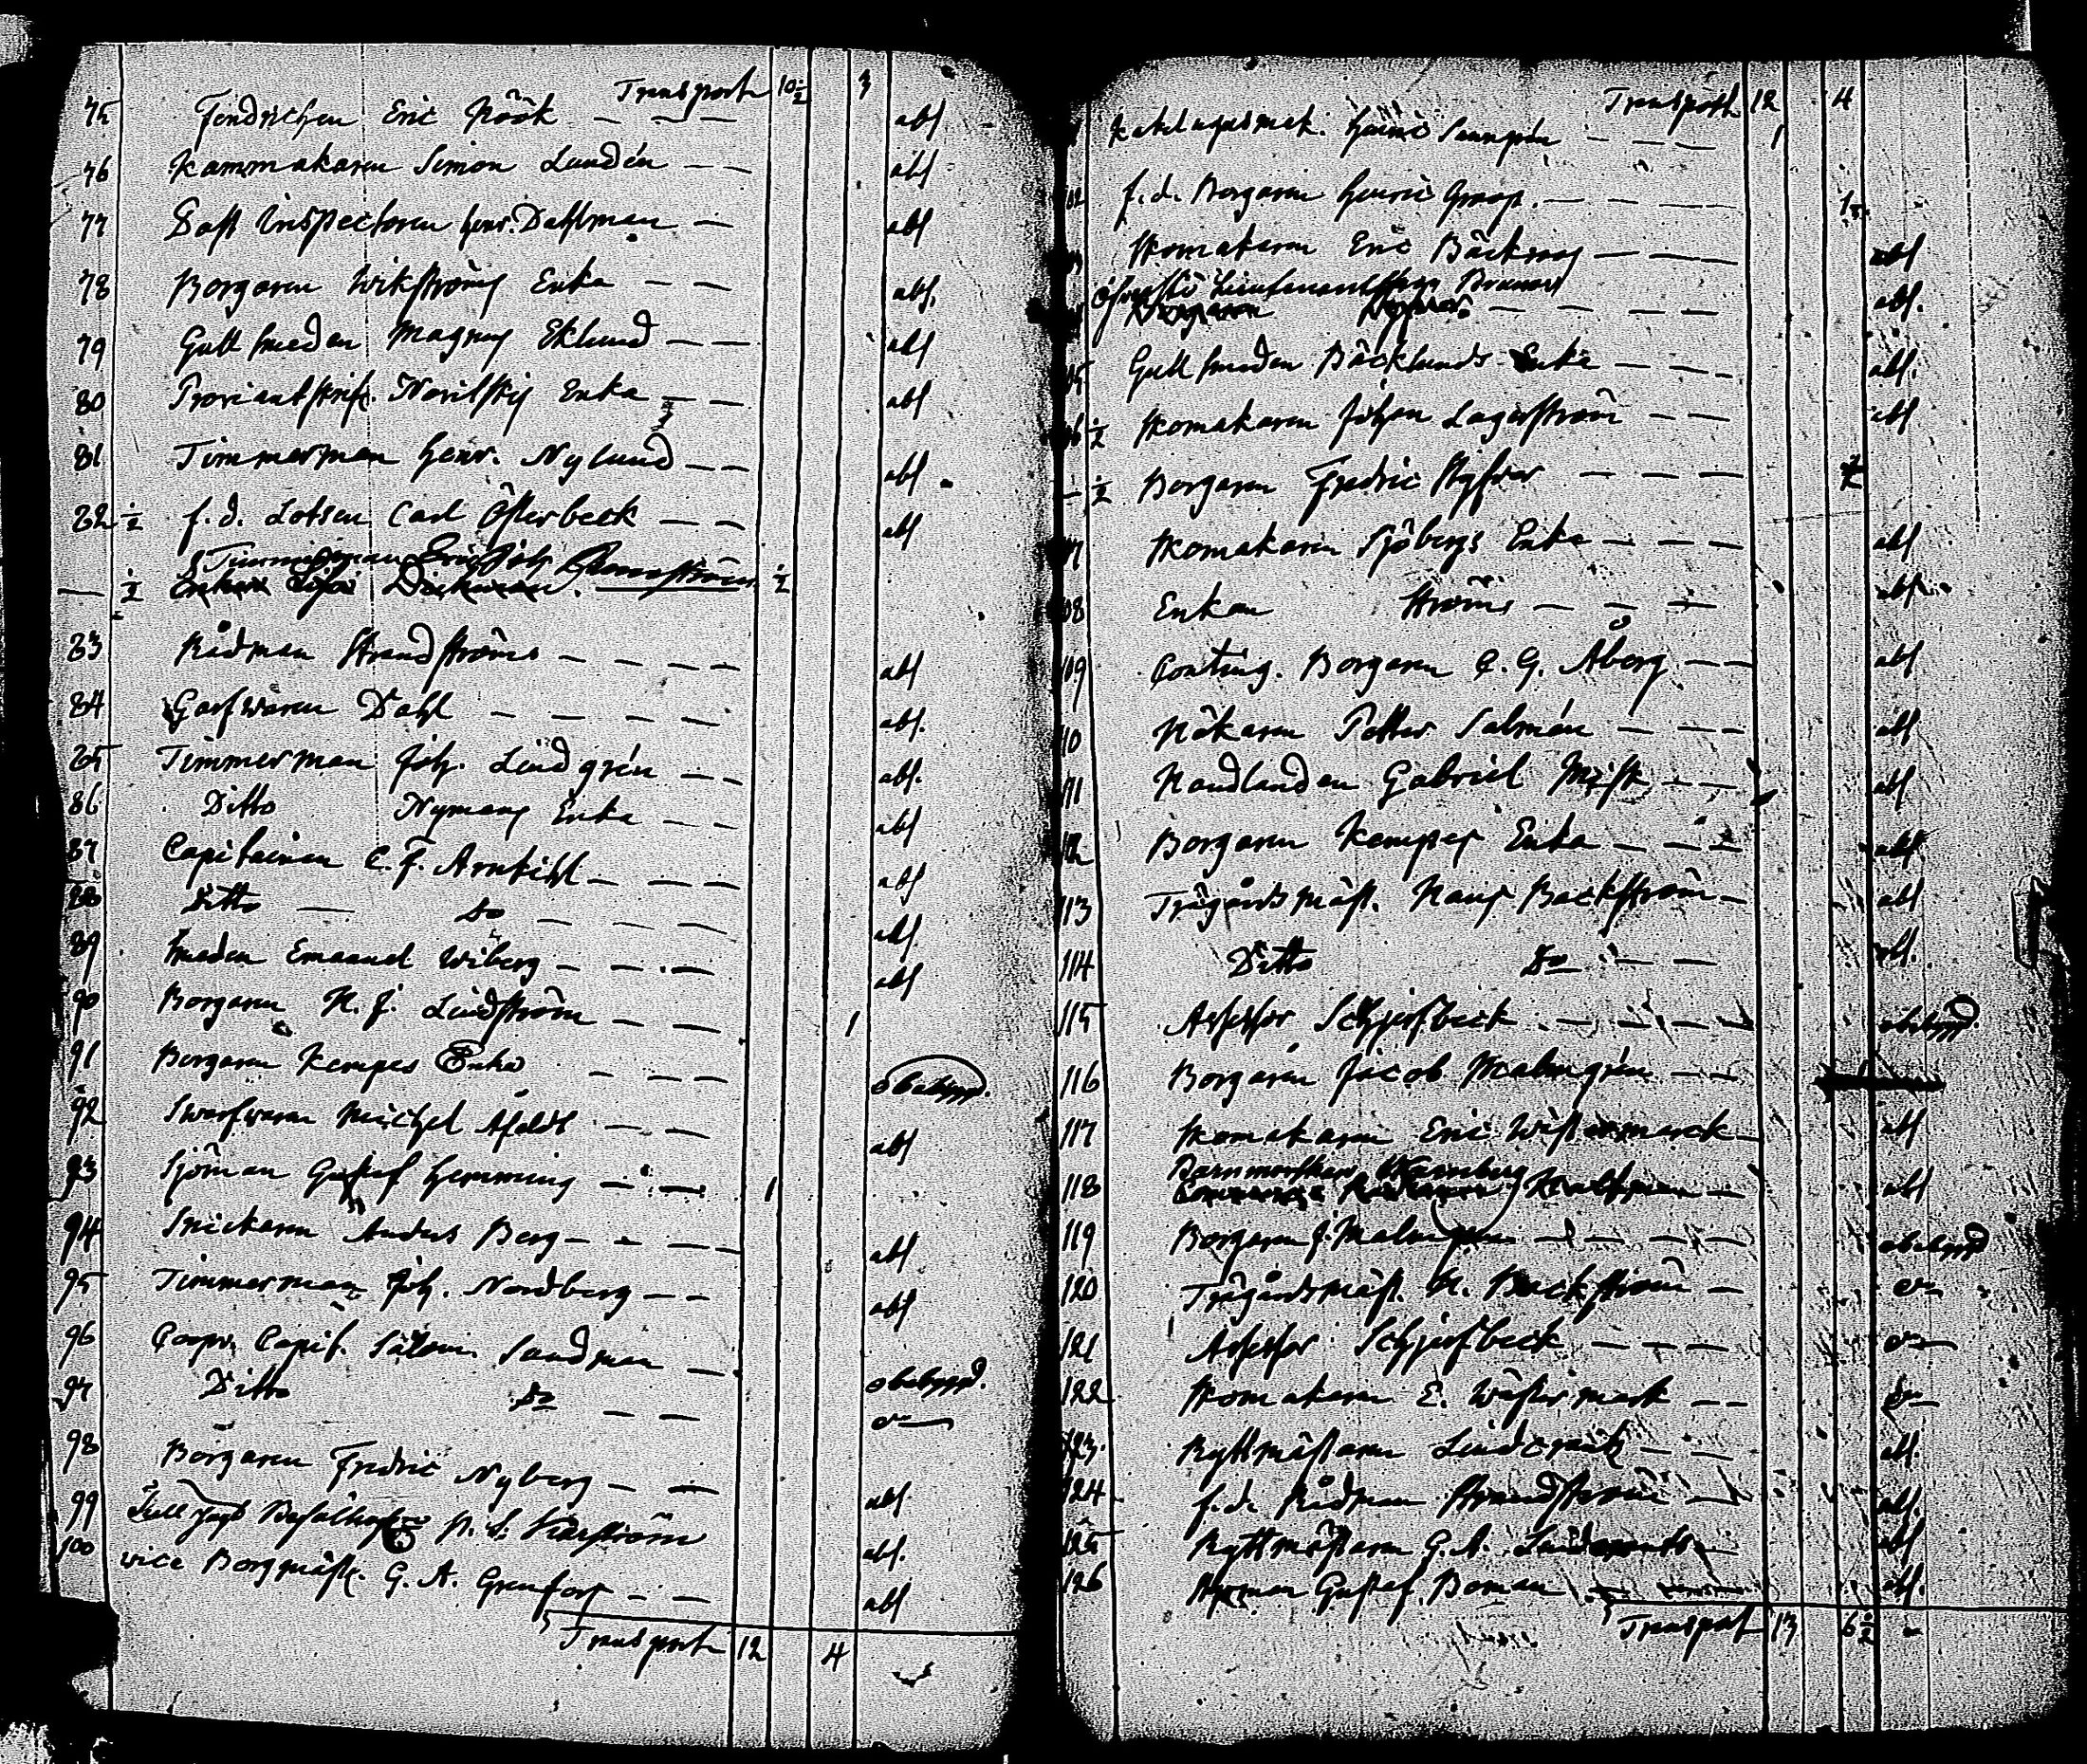 Transport 10½ 3
75 Fendrichen Eric Röök — — — abs
76 Kammakaren Simon Lundén — — abs
77 Inspectoren Henr. Dahlman — abs
78 Borgaren Wikströms Enka — — abs.
79 Gullsmeden Magnus Eklund — — abs
80 Proviantskrif. Enka — — abs
81 Timmerman Henr. Nylund — — abs
82 ½ f. d. Lotsen Carl Österbeck — — abs
Timmerman Eric Joh.
— ½ Enkan ½
83 Rådman Strandströms — — — — abs
84 Garfwaren Dahl — — — — abs.
85 Timmerman Joh. Lindgrén — — abs.
86 Ditto Nymans Enka — — abs
87 Capitainen C. F. Arnkihl — — — abs
88 Ditto — Do — — — — abs
89 Smeden Emanuel Wiberg — — — abs
90 Borgaren H. J. Lindström — — — 1
91 Borgaren Kempes Enka — — — obebygd.
92 Swarfwaren Michel — — — abs
93 Sjöman Gustaf Hemming — — — 1
94 Snickaren Anders Berg — — — — abs
95 Timmerman Joh. Nordberg — — abs
96 Capit. Salom. Sandman — obebygd.
97 Ditto Do — — do
98 Borgaren Fredric Nyberg — — abs
99 Tull Jagt abs.
100 vice Borgmäst. G. A. — — abs
Transport 12 4
Transport 12 4
Henric — — — 1
102 f. d. Borgaren Henric — — — — 1
Skomakaren Eric — — — abs
Öfverste Lieutenantskan
Borgaren — — — — abs.
105 Gullsmeden Bäcklunds Enka — — — abs.
106 ½ Skomakaren Johan Lagerström — — abs
— ½ Borgaren Fredric — — — ½
107 Skomakaren Sjöbergs Enka — — — abs
108 Enkan Ströms — — — abs.
109 Conting. Borgaren C. G. Åberg — — abs
110 Åkaren Petter Salmén — — — abs
111 Handlanden Gabriel — — abs
112 Borgaren Kempes Enka — — — abs
113 Trägårdsmäst. Hans Backström — abs
114 Ditto Do — — abs.
115 Assessor Schjerfbeck — — — — obebygd.
116 Borgaren Jacob Malmgrén — —
117 Skomakaren Eric Westermarck — abs
118 — abs
119 Borgaren J. Malmgren — — — — obebygd
120 Trägårdsmäst. H. Backström — do
121 Assessor Schjerfbeck — — — do
122 Skomakaren E. Wästermark — — do
123. Ryttmästaren — — abs.
124 f. d. Rådman Strandström — abs.
125 Ryttmästaren G. A. — abs
126 Gustaf Boman — — abs.
Transport 13 6½